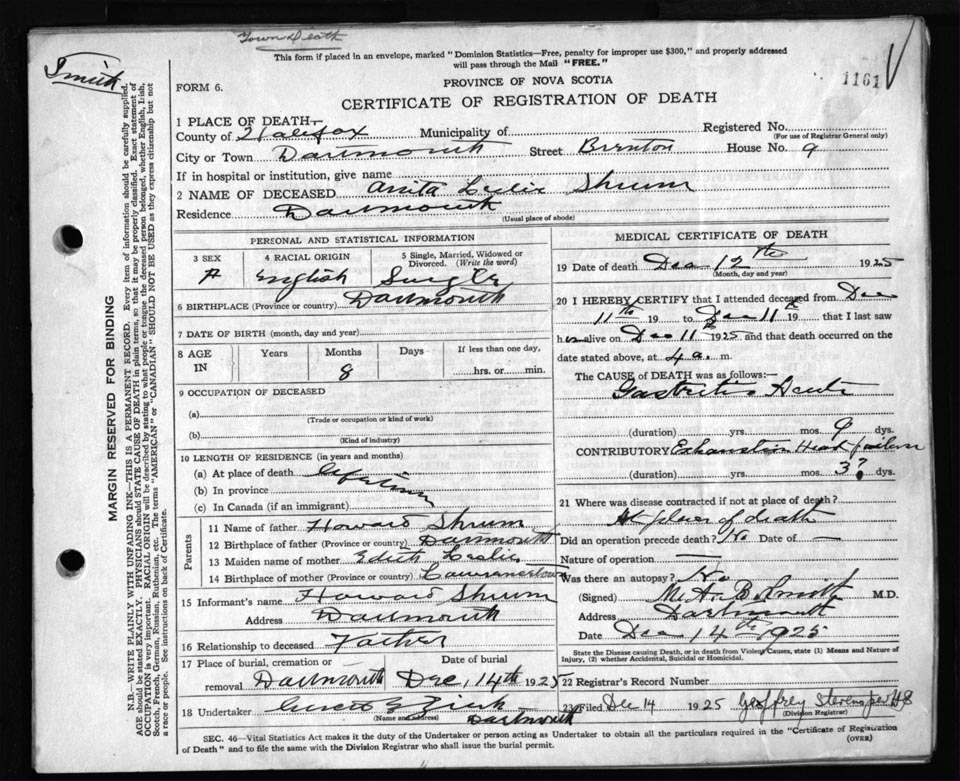 Town Death
This form if placed in an envelope, marked "Dominion Statistics—Free, penalty for improper use $300," and properly addressed
will pass through the Mail "FREE."
Smith
1161
FORM 6.
PROVINCE OF NOVA SCOTIA
CERTIFICATE OF REGISTRATION OF DEATH
1 PLACE OF DEATH—
County of Halifax Municipality of Registered No.
(For use of Registrar General only)
City or Town Dartmouth Street Brenton House No. 9
If in hospital or institution, give name
2 NAME OF DECEASED Anita Leslie Shrum
Residence Dartmouth
(Usual place of abode)
PERSONAL AND STATISTICAL INFORMATION
3 SEX 4 RACIAL ORIGIN 5 Single, Married, Widowed or Divorced. (Write the word)
English Single
6 BIRTHPLACE (Province or country) Dartmouth
7 DATE OF BIRTH (month, day and year)
8 AGE IN Years Months Days If less than one day,
8 hrs. or min.
9 OCCUPATION OF DECEASED
(a)
(Trade or occupation or kind of work)
(b)
(Kind of industry)
10 LENGTH OF RESIDENCE (in years and months)
(a) At place of death Lifetime
(b) In province
(c) In Canada (if an immigrant)
Parents
11 Name of father Howard Shrum
12 Birthplace of father (Province or country) Dartmouth
13 Maiden name of mother Edith Leslie
14 Birthplace of mother (Province or country) Lawrencetown
15 Informant's name Howard Shrum
Address Dartmouth
16 Relationship to deceased Father
17 Place of burial, cremation or removal Dartmouth Date of burial Dec, 14th 1925
18 Undertaker Zink
(Name and address) Dartmouth
MEDICAL CERTIFICATE OF DEATH
19 Date of death Dec 12th 1925
(Month, day and year)
20 I HEREBY CERTIFY that I attended deceased from Dec
11th 19 to Dec 11th 19 that I last saw
h alive on Dec 11th 1925 and that death occurred on the
date stated above, at 4 a. m.
The CAUSE of DEATH was as follows:—
Gastritis Acute
(duration) yrs. mos. 9 dys.
CONTRIBUTORY Exhaustion Heart failure
(duration) yrs. mos. 3? dys.
21 Where was disease contracted if not at place of death?
At place of death
Did an operation precede death? No Date of —
Nature of operation —
Was there an autopsy? No
(Signed) Smith M.D.
Address Dartmouth
Date Dec 14th 1925
State the Disease causing Death, or in death from Violent Causes, state (1) Means and Nature of
Injury, (2) whether Accidental, Suicidal or Homicidal.
22 Registrar's Record Number
23 Filed Dec 14 1925 Geoffrey Stevens per
(Division Registrar)
SEC. 46—Vital Statistics Act makes it the duty of the Undertaker or person acting as Undertaker to obtain all the particulars required in the "Certificate of Registration
of Death" and to file the same with the Division Registrar who shall issue the burial permit. (OVER)
MARGIN RESERVED FOR BINDING
N.B.—WRITE PLAINLY WITH UNFADING INK—THIS IS A PERMANENT RECORD. Every item of information should be carefully supplied.
AGE should be stated EXACTLY. PHYSICIANS should STATE CAUSE OF DEATH in plain terms, so that it may be properly classified. Exact statement of
OCCUPATION is very important. RACIAL ORIGIN will be described by stating to what people or tongue the deceased person belonged, whether English, Irish,
Scotch, French, German, Russian, Ruthenian, etc. The terms "AMERICAN" or "CANADIAN" SHOULD NOT BE USED as they express citizenship but not
a race or people. See instructions on back of Certificate.